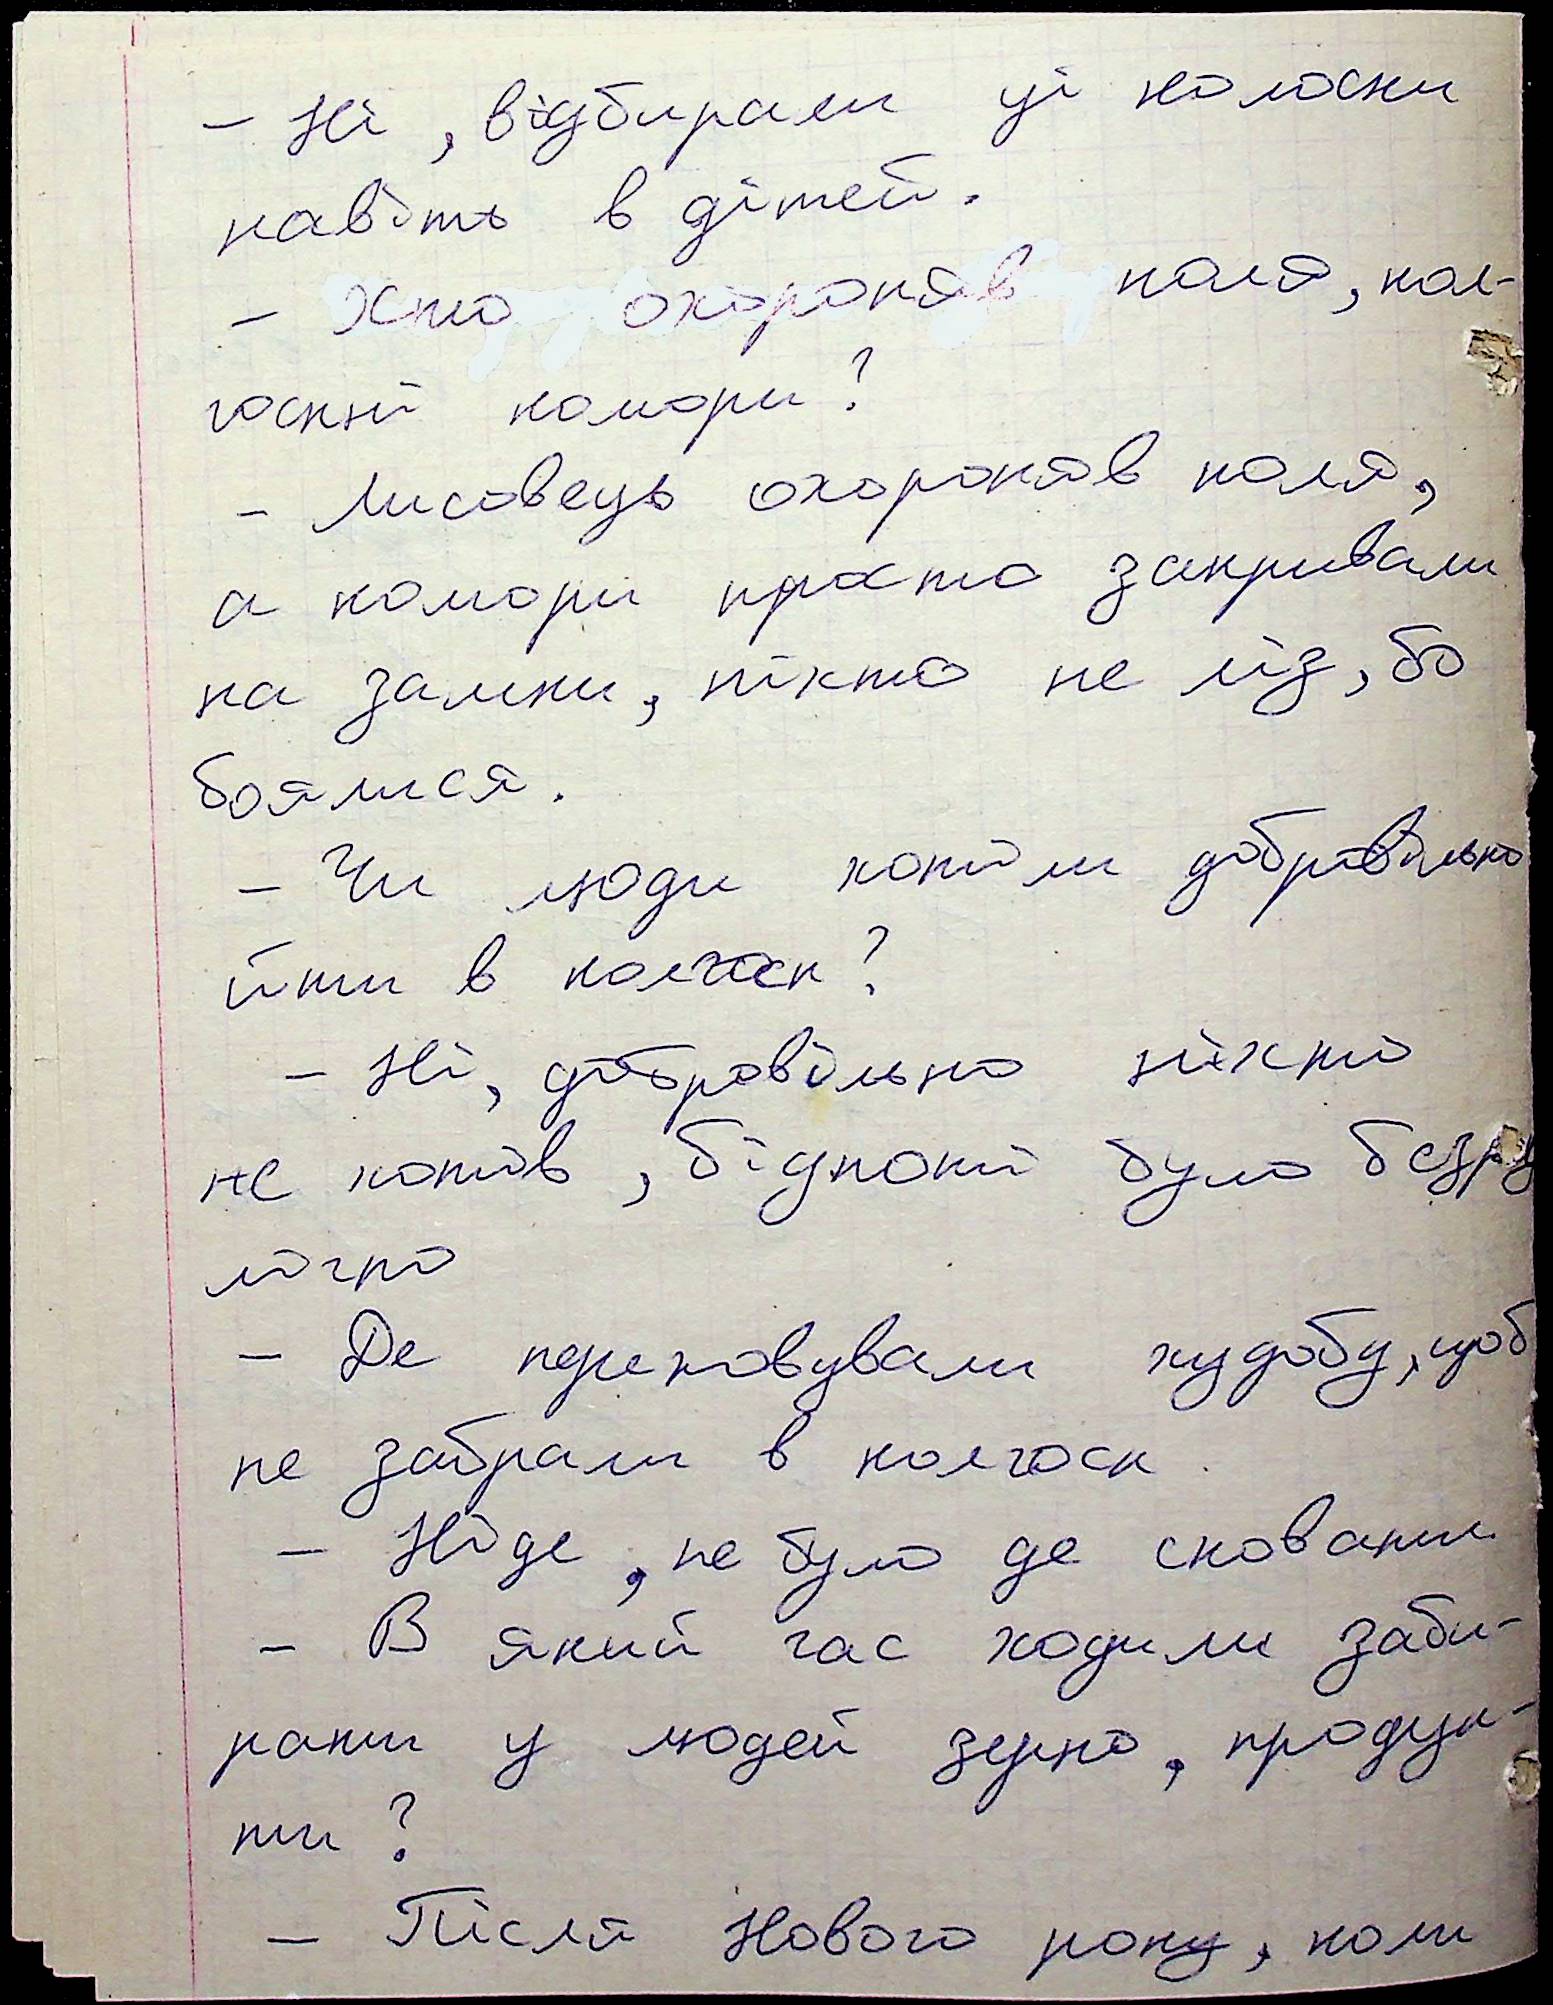 - Ні, відбирали ці колоски
навіть в дітей.
- Хто охороняв поля, кол-
госпні комори?
- Лисовець охороняв поля,
а комори просто закривали
на замки, ніхто не ліз, бо
боялися.
- Чи люди хотіли добровільно
йти в колгосп?
- Ні, добровільно ніхто
не хотів, бідноті було безро
лічно
- Де переховували худобу, щоб
не забрали в колгосп.
- Ніде, не було де сховати.
- В який час ходили заби-
рати у людей зерно, продук-
ти?
- Після Нового року, коли